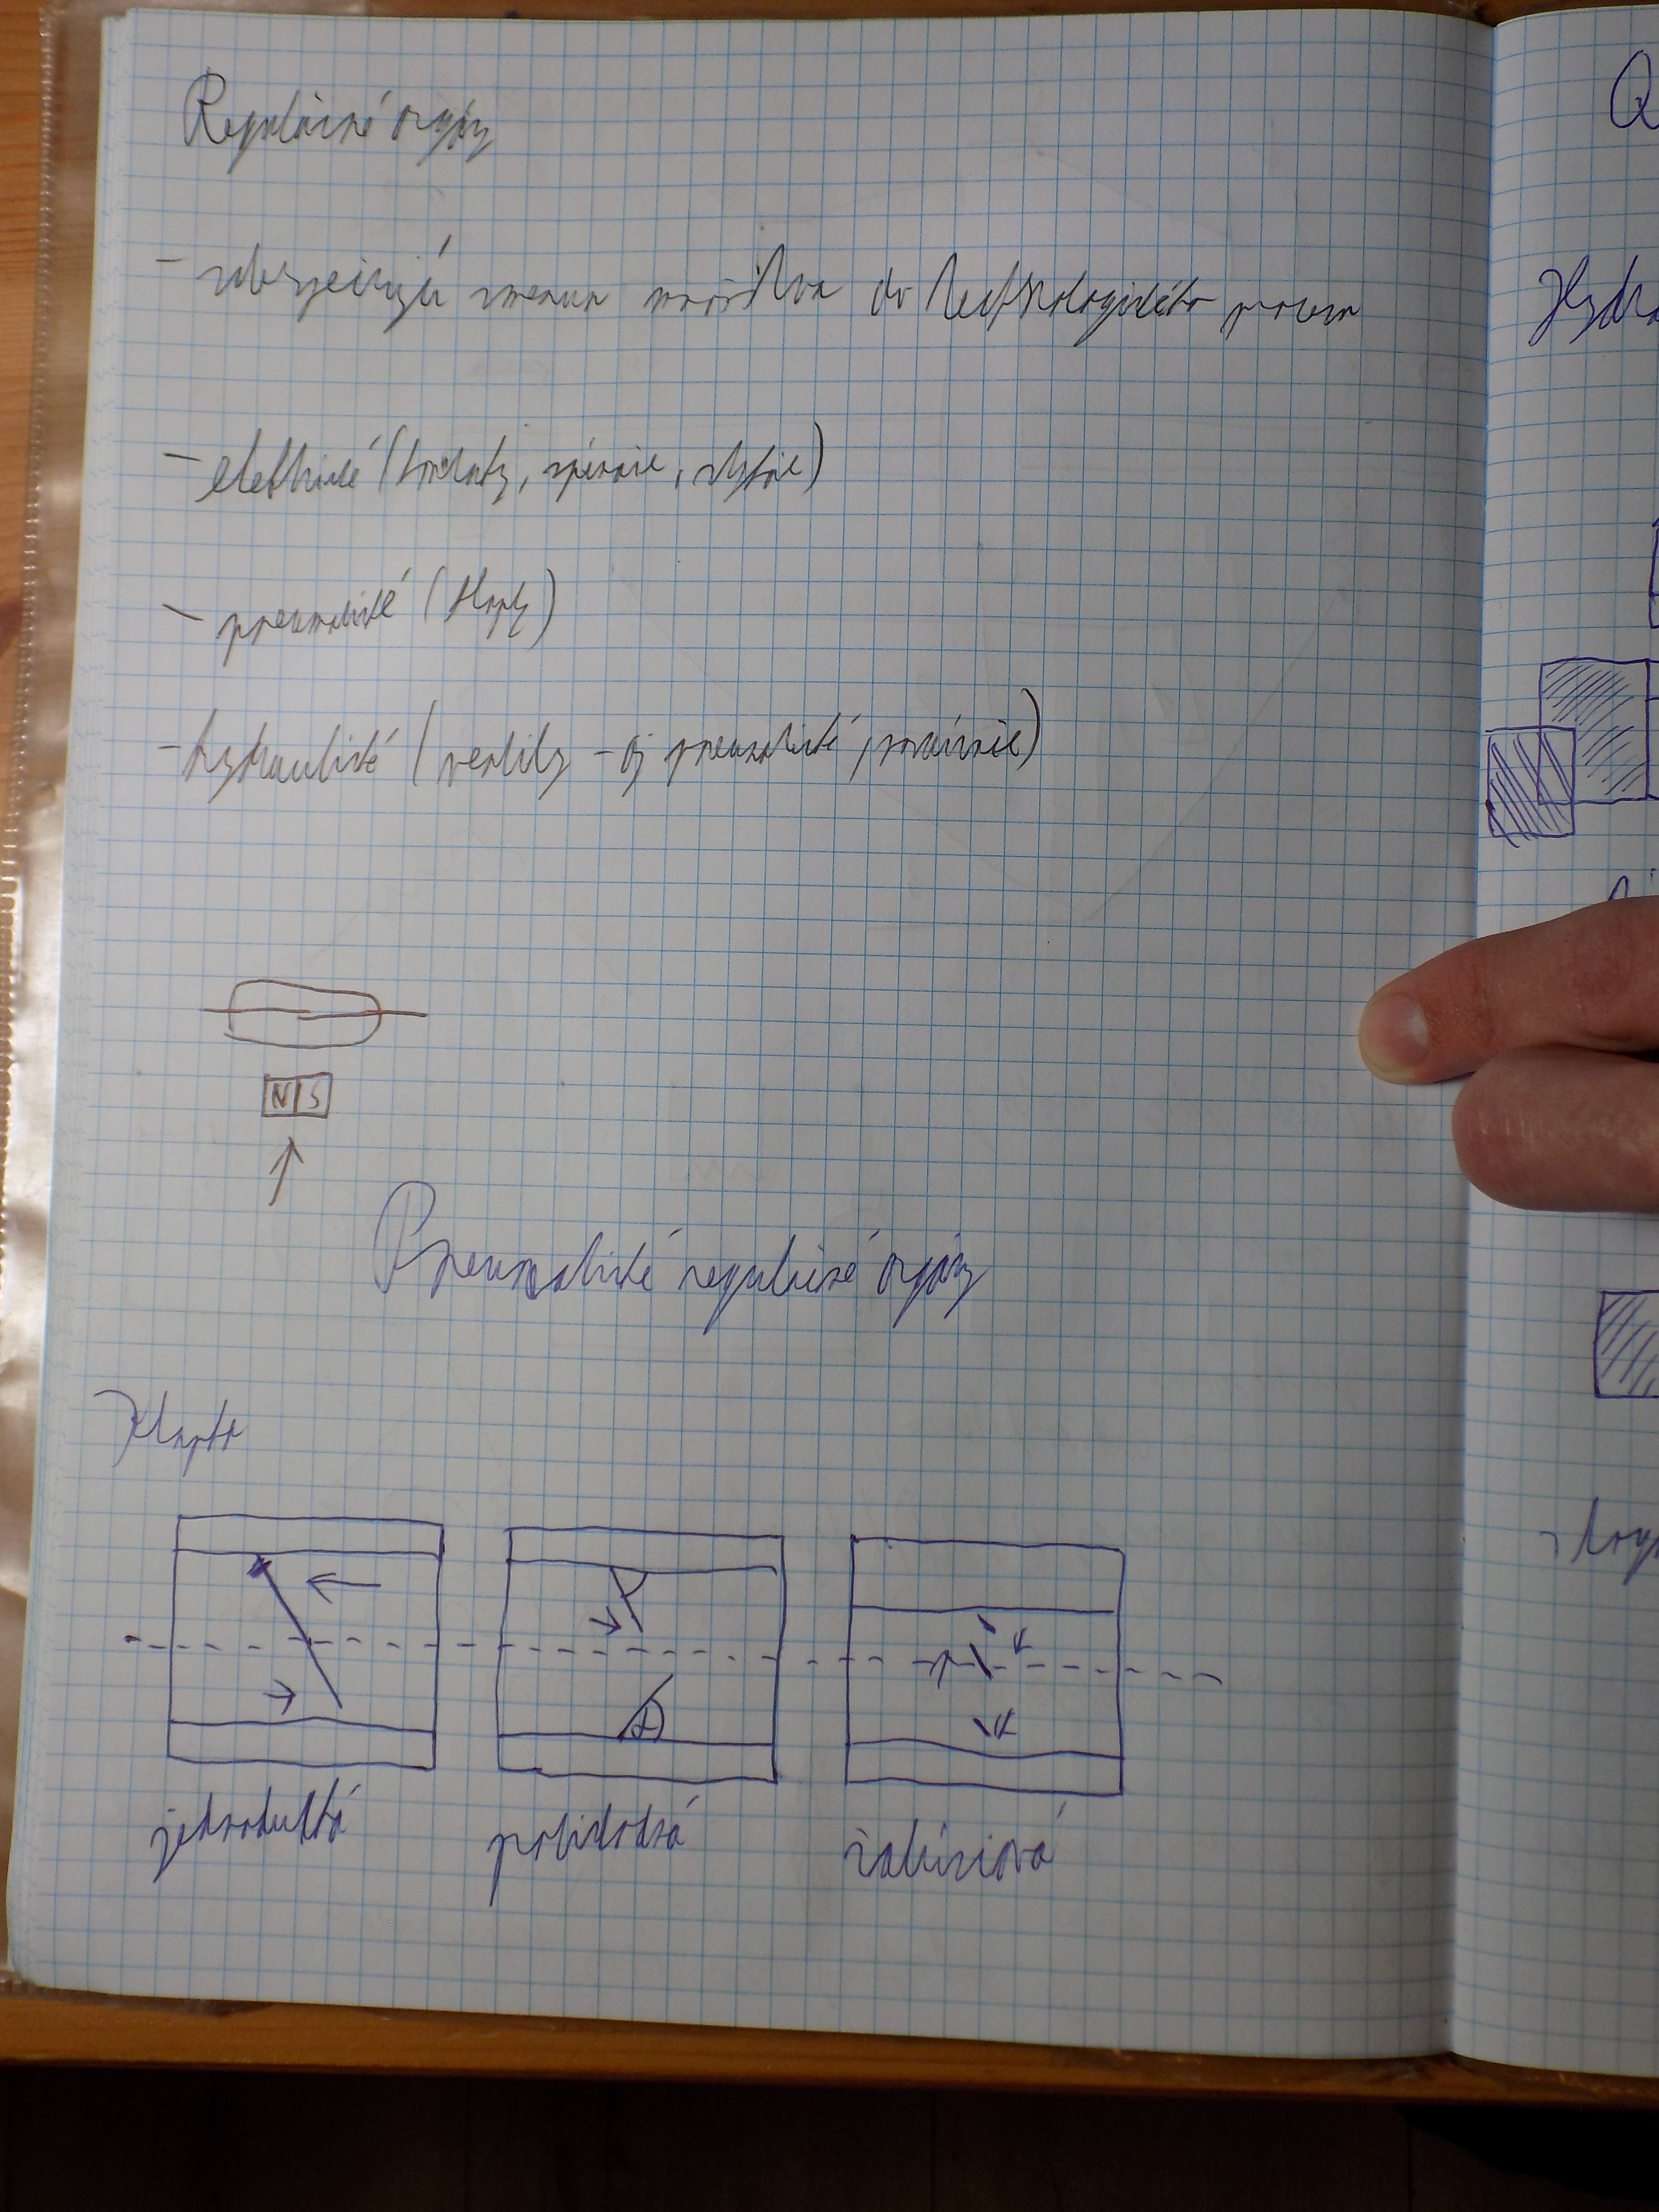 Regulačné orgány
- zabezpečujú zmenu množstva do technologického procesu
- elektrické (kontakty, spínacie, stykače)
- pneumatické (klapky)
- hydraulické (ventily - aj pneumatické,
N S
Pneumatické regulačné orgány
Klapka
jednoduchá žalúziová
Q
Hydra